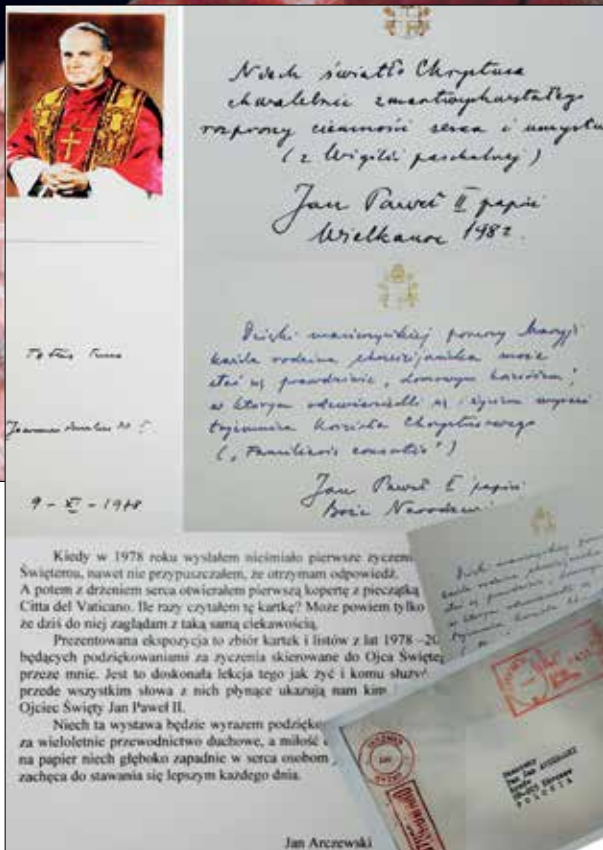 Niech światło Chrystusa
chwalebnie zmartwychwstałego
rozproszy ciemności serca i umysłu
(z Wigilii paschalnej)
Jan Paweł II papież
Wielkanoc 1982.
Dzięki macierzyńskiej pomocy Maryi
każda rodzina chrześcijańska może
stać się prawdziwie „domowym kościołem”,
w którym odzwierciedli się i
tajemnica Kościoła Chrystusowego
(„Familiaris consortio”)
Jan Paweł II papież
Boże
Totus Tuus
Joannes Paulus PP. II
9 - XI - 1978
Kiedy w 1978 roku wysłałem nieśmiało pierwsze
Świętemu, nawet nie przypuszczałem, że otrzymam odpowiedź.
A potem z drżeniem serca otwierałem pierwszą kopertę z pieczątką
Citta del Vaticano. Ile razy czytałem tę kartkę? Może powiem tylko
że dziś do niej zaglądam z taką samą ciekawością.
Prezentowana ekspozycja to zbiór kartek i listów z lat 1978 –20
będących podziękowaniami za życzenia skierowane do Ojca
przeze mnie. Jest to doskonała lekcja tego jak żyć i komu
przede wszystkim słowa z nich płynące ukazują nam kim
Ojciec Święty Jan Paweł II.
Niech ta wystawa będzie wyrazem
za wieloletnie przewodnictwo duchowe, a miłość
na papier niech głęboko zapadnie w serca osobom
zachęca do stawania się lepszym każdego dnia.
Jan Arczewski
Dzięki macierzyńskiej
Szanowny
Pan Jan ARCZEWSKI
POLONIA